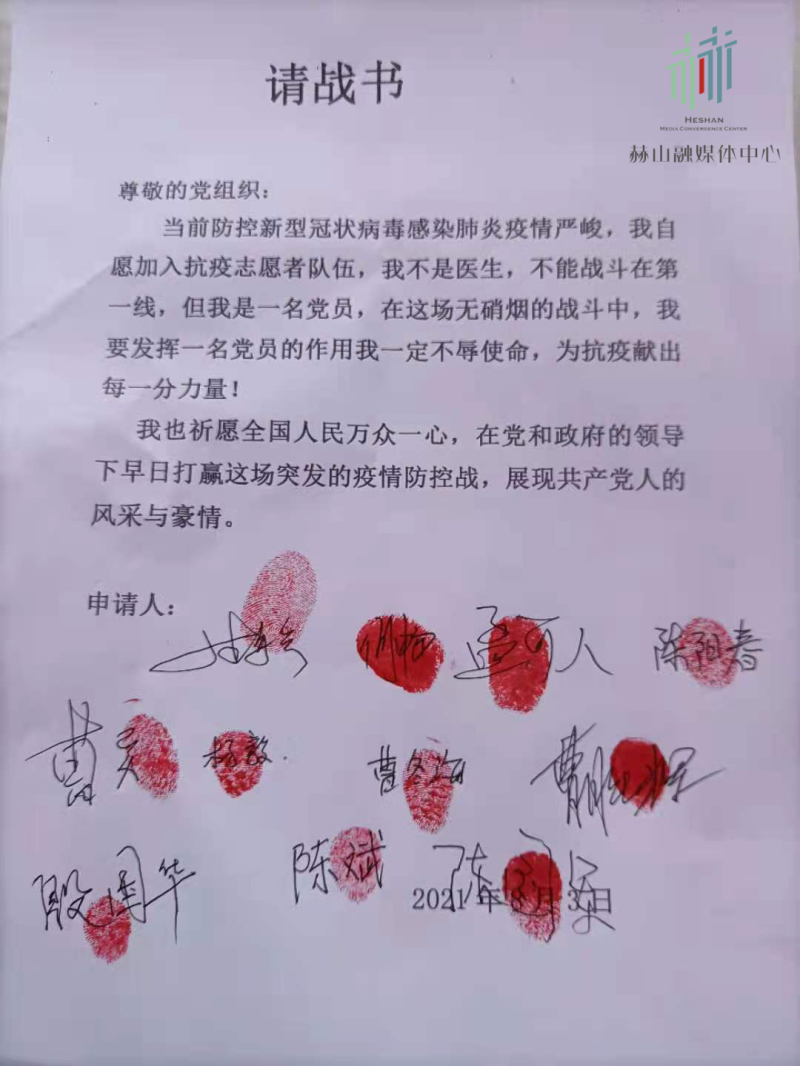 请战书
HESHAN
MEDIA CONVERGENCE CENTER
赫山融媒体中心
尊敬的党组织：
当前防控新型冠状病毒感染肺炎疫情严峻，我自
愿加入抗疫志愿者队伍，我不是医生，不能战斗在第
一线，但我是一名党员，在这场无硝烟的战斗中，我
要发挥一名党员的作用我一定不辱使命，为抗疫献出
每一分力量！
我也祈愿全国人民万众一心，在党和政府的领导
下早日打赢这场突发的疫情防控战，展现共产党人的
风采与豪情。
申请人：
孟可人 陈阳春
杨毅 曹冬海
殷国华 陈斌 陈
2021 年 月 日